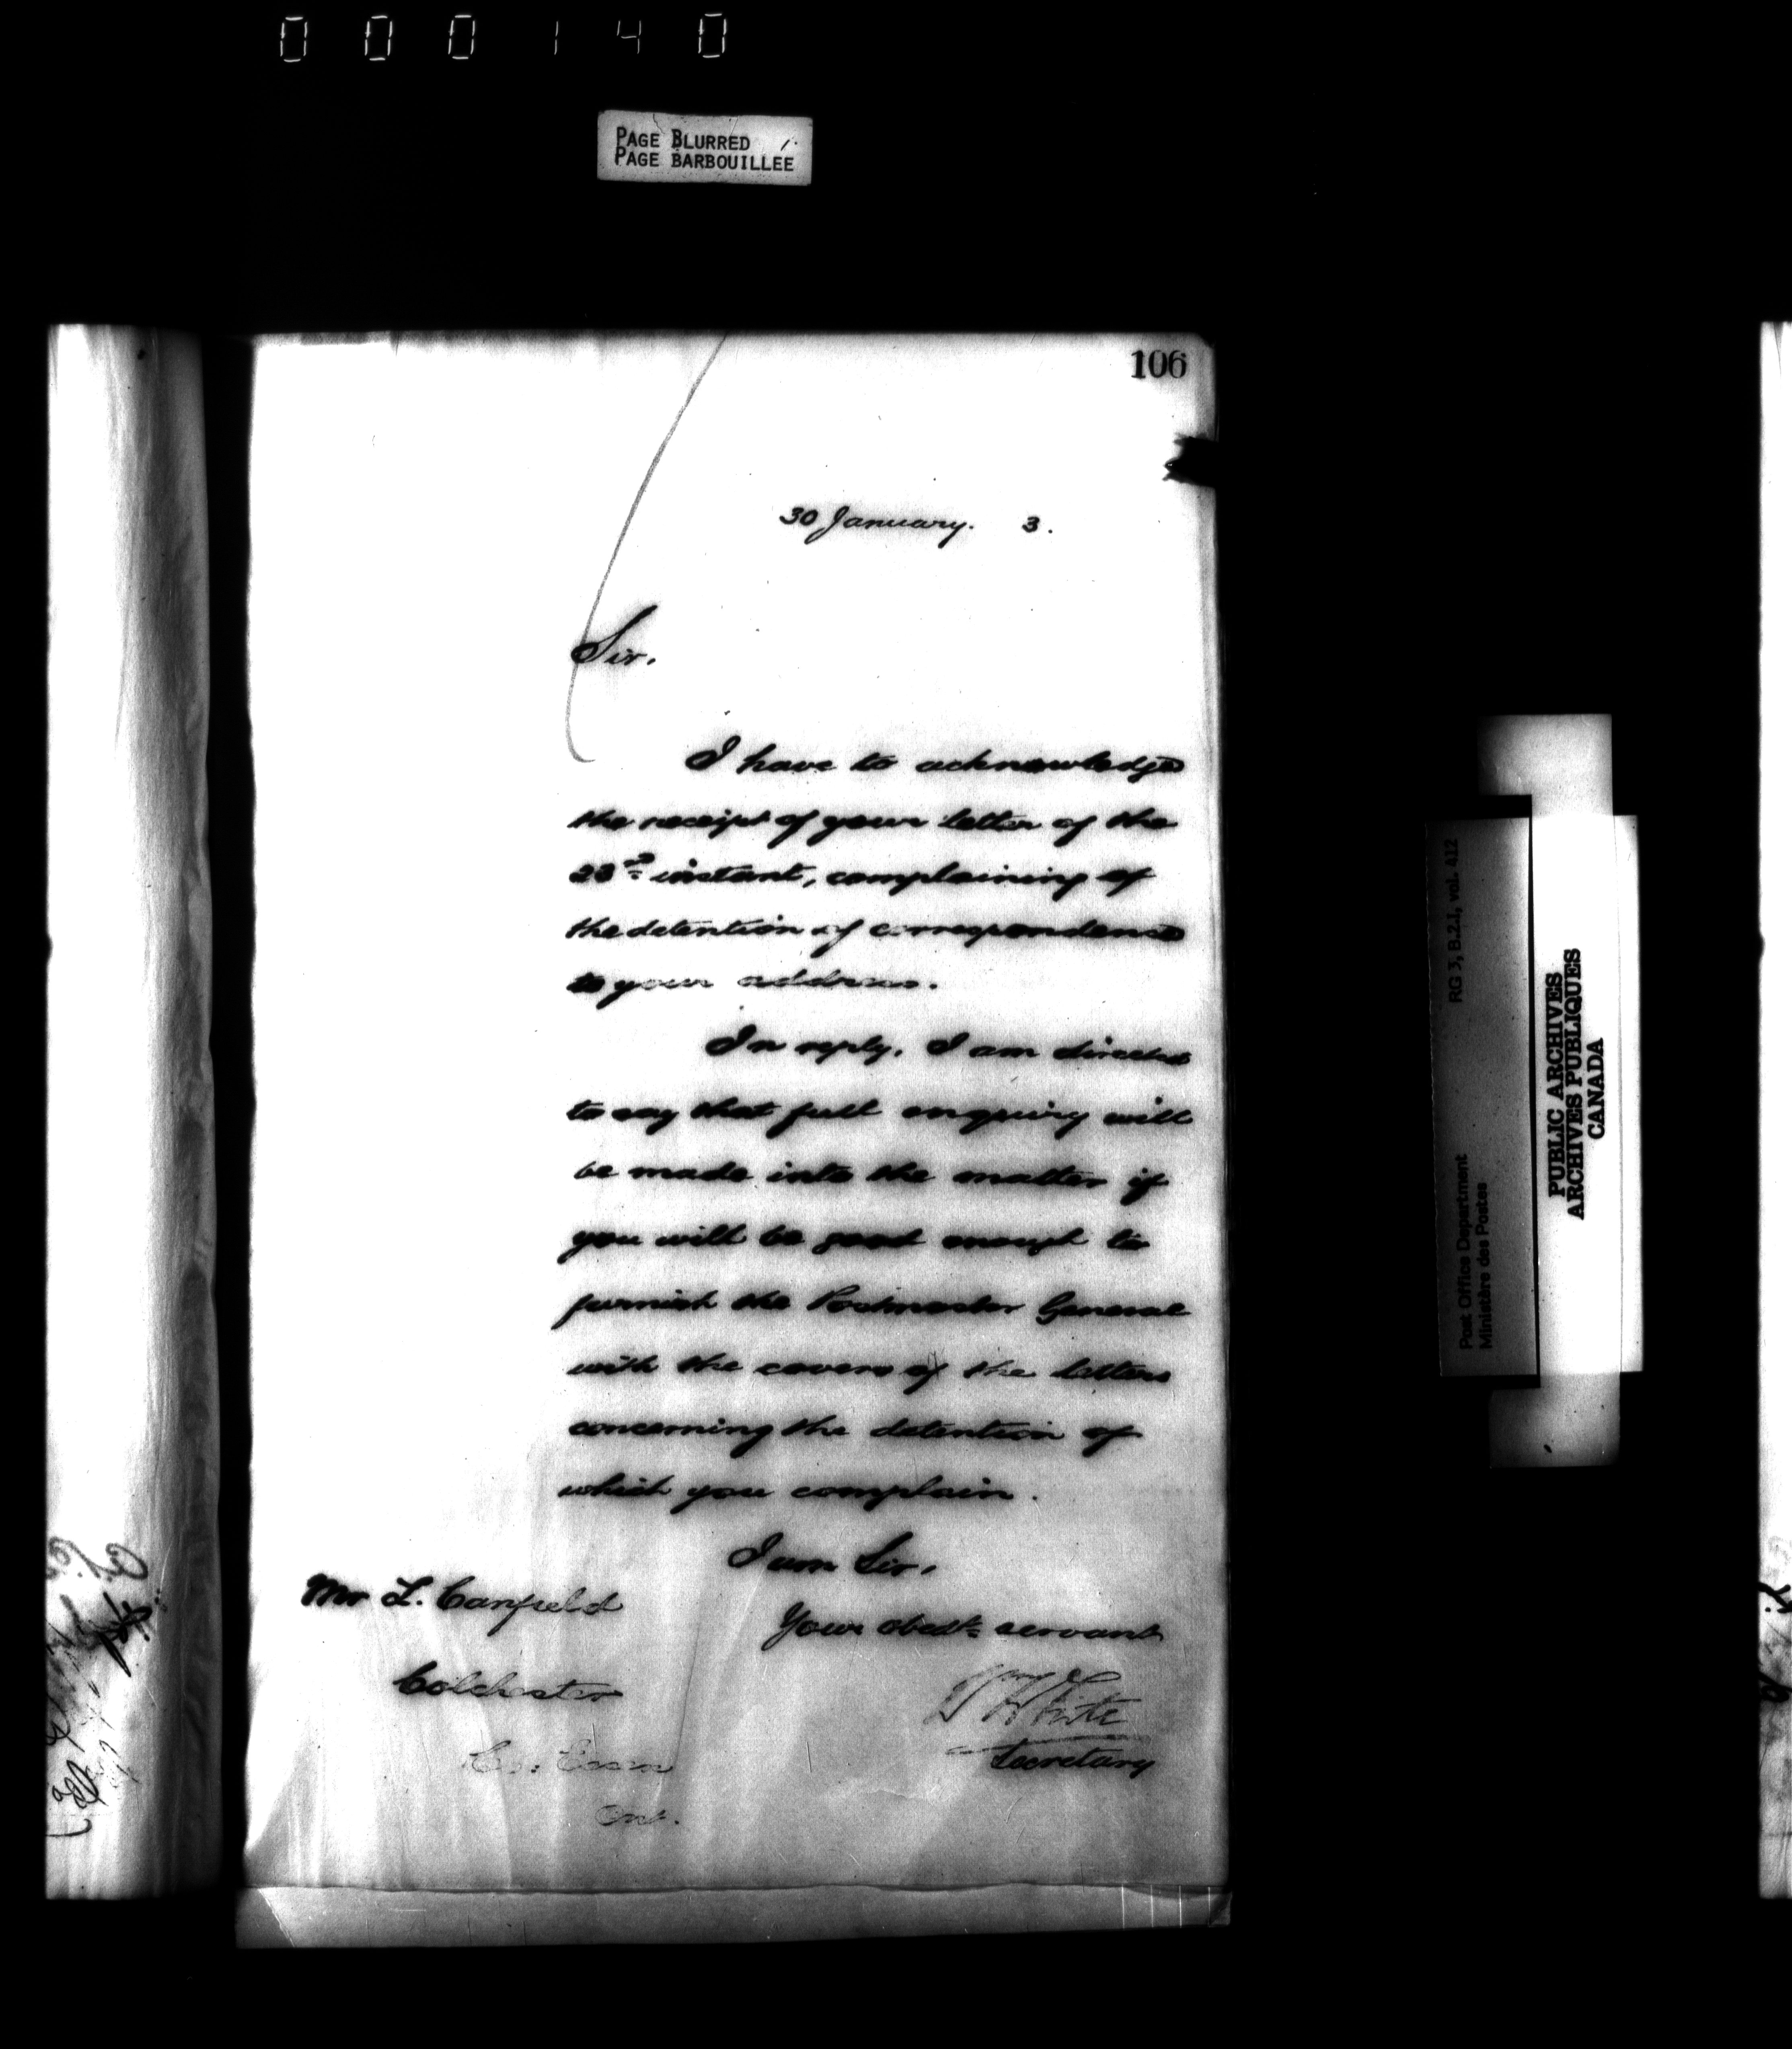 000140
PAGE BLURRED
PAGE BARBOUILLÉE
106
30 January. 3.
Sir,
I have to acknowledge
the receipt of your letter of the
23rd instant, complaining of
the detention of correspondence
to your address.
In reply, I am directed
to say that full enquiry will
be made into the matter if
you will be good enough to
furnish the Postmaster General
with the covers of the letters
concerning the detention of
which you complain.
I am Sir,
Your obedt. servant
Wm White
Secretary
Mr L. Canfield
Colchester
Co: Essex
Ont.
Post Office Department RG 3, B.2.1, vol. 412
Ministère des Postes
PUBLIC ARCHIVES
ARCHIVES PUBLIQUES
CANADA